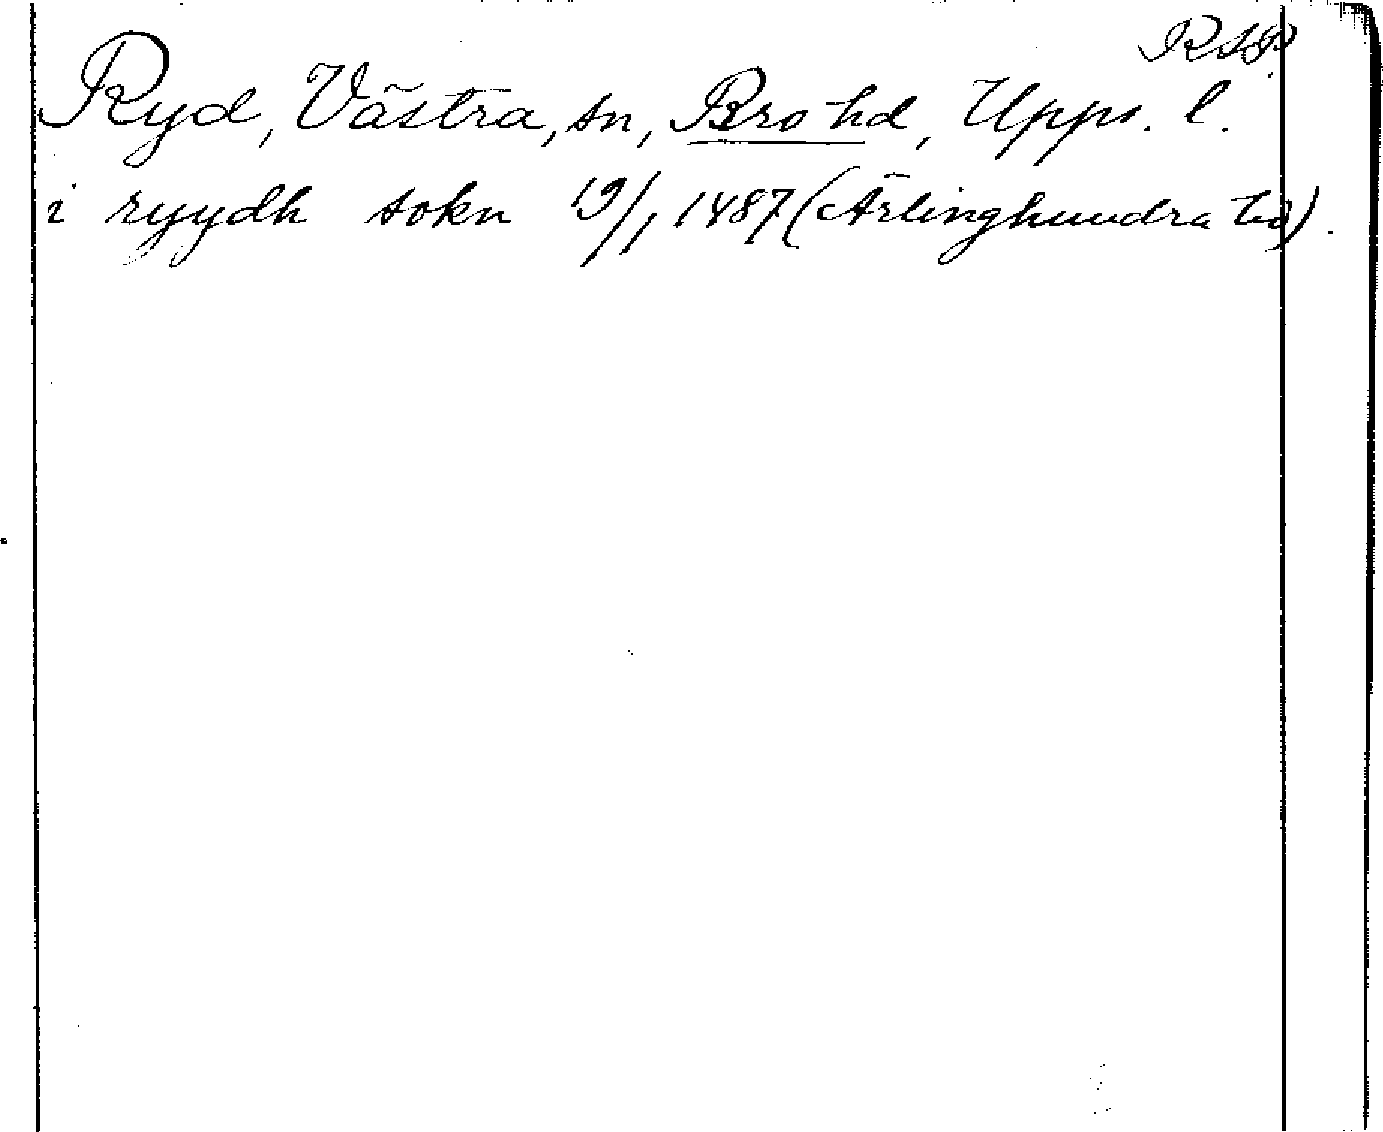 RAP.
Ryd, Västra, sn, Bro hd, Upps. l.
i ryydh sokn 19/1 1487 (Ärlinghundra hd).